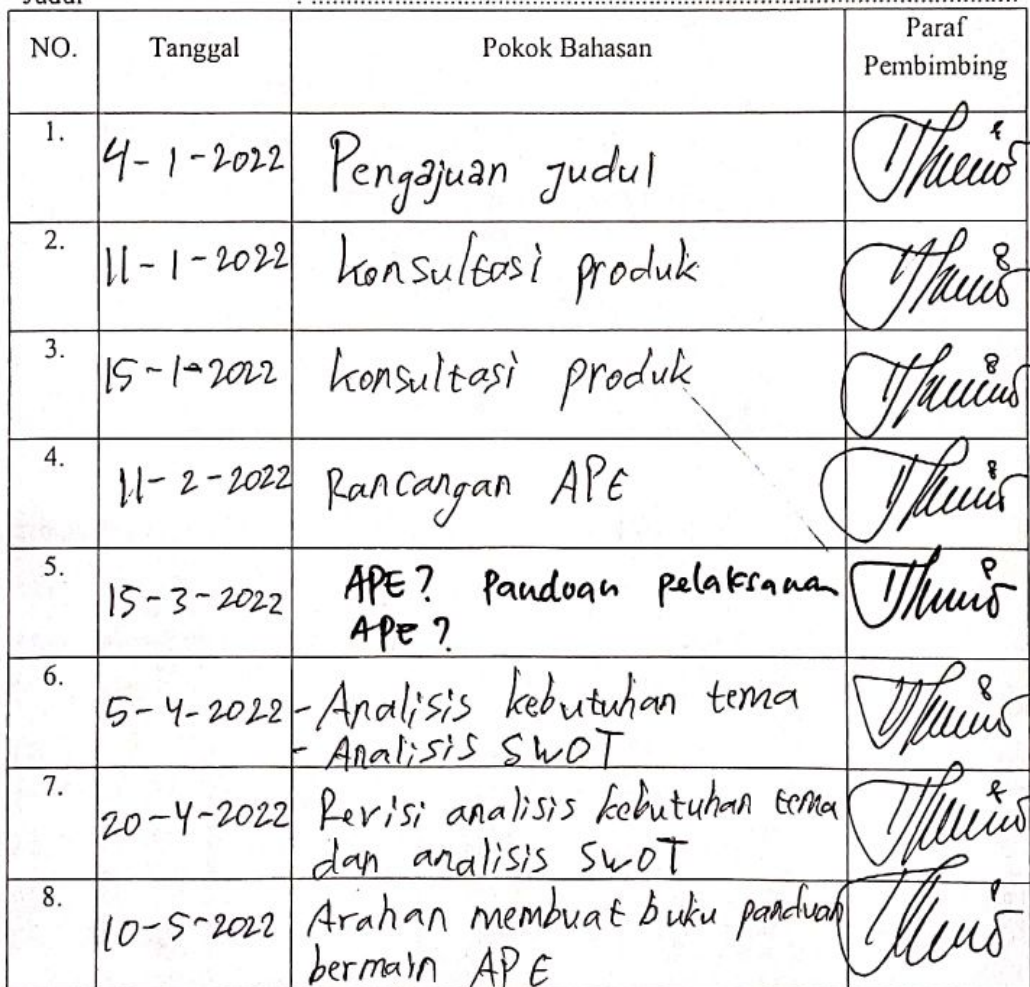 Judul : ........................................................................
NO. Tanggal Pokok Bahasan Paraf
Pembimbing
1. 4-1-2022 Pengajuan Judul
2. 11-1-2022 konsultasi produk
3. 15-1-2022 konsultasi produk
4. 11-2-2022 Rancangan APE
5. 15-3-2022 APE? Pandoan pelaksanan
APE?
6. 5-4-2022 - Analisis kebutuhan tema
- Analisis SWOT
7. 20-4-2022 Revisi analisis kebutuhan tema
dan analisis SWOT
8. 10-5-2022 Arahan membuat buku panduan
bermain APE